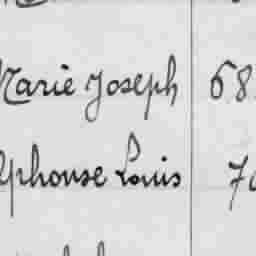 Marie Joseph 68
lphonse Louis 70